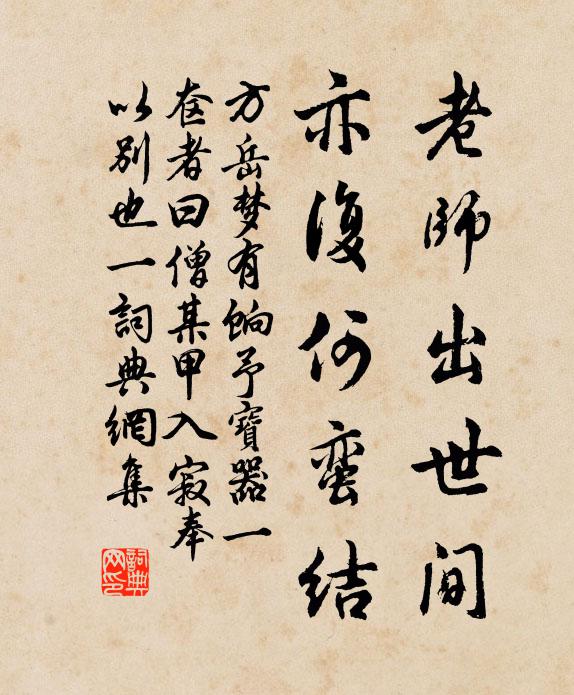 老師出世間
亦復何蛮結
方岳梦有餉予寶器一
奁者曰僧某甲入寂奉
以别也一詞典網集
詞典网印